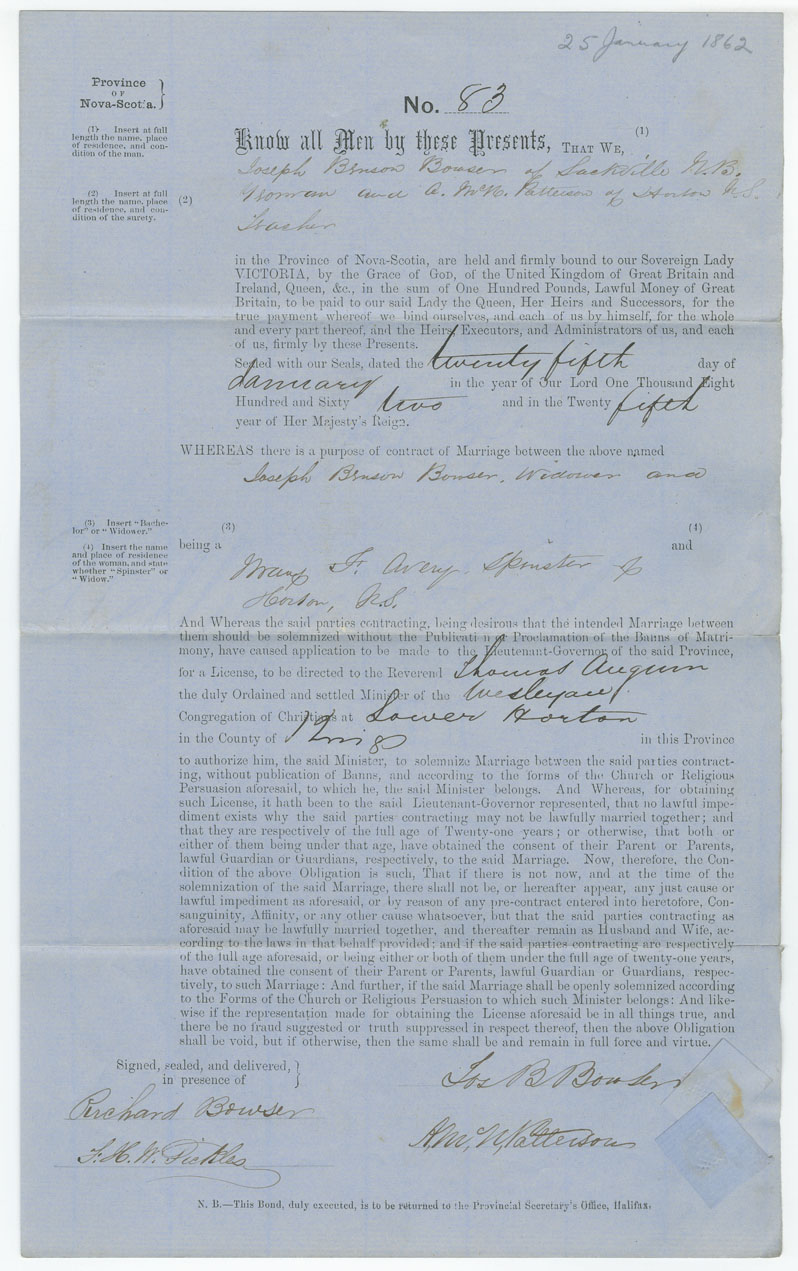 25 January 1862
Province
OF
Nova-Scotia.
No. 83
(1) Insert at full
length the name, place
of residence, and con-
dition of the man.
Know all Men by these Presents, THAT WE, (1)
Joseph Benson Bowser of Sackville N.B.
(2) Insert at full
length the name, place
of residence, and con-
dition of the surety.
(2) Yeoman and A. McN. Patterson of Horton N.S.
Teacher
in the Province of Nova-Scotia, are held and firmly bound to our Sovereign Lady
VICTORIA, by the Grace of GOD, of the United Kingdom of Great Britain and
Ireland, Queen, &c., in the sum of One Hundred Pounds, Lawful Money of Great
Britain, to be paid to our said Lady the Queen, Her Heirs and Successors, for the
true payment whereof we bind ourselves, and each of us by himself, for the whole
and every part thereof, and the Heirs, Executors, and Administrators of us, and each
of us, firmly by these Presents.
Sealed with our Seals, dated the twenty fifth day of
January in the year of Our Lord One Thousand Eight
Hundred and Sixty two and in the Twenty fifth
year of Her Majesty's Reign.
WHEREAS there is a purpose of contract of Marriage between the above named
Joseph Benson Bowser, Widower and
(3) Insert "Bache-
lor" or "Widower."
(4) Insert the name
and place of residence
of the woman, and state
whether "Spinster" or
"Widow."
being a (3) and (4)
F. Avery Spinster of
Horton, N.S.
And Whereas the said parties contracting, being desirous that the intended Marriage between
them should be solemnized without the Publication or Proclamation of the Banns of Matri-
mony, have caused application to be made to the Lieutenant-Governor of the said Province,
for a License, to be directed to the Reverend Thomas Angwin
the duly Ordained and settled Minister of the Wesleyan
Congregation of Christians at Lower Horton
in the County of Kings in this Province
to authorize him, the said Minister, to solemnize Marriage between the said parties contract-
ing, without publication of Banns, and according to the forms of the Church or Religious
Persuasion aforesaid, to which he, the said Minister belongs. And Whereas, for obtaining
such License, it hath been to the said Lieutenant-Governor represented, that no lawful impe-
diment exists why the said parties contracting may not be lawfully married together; and
that they are respectively of the full age of Twenty-one years; or otherwise, that both or
either of them being under that age, have obtained the consent of their Parent or Parents,
lawful Guardian or Guardians, respectively, to the said Marriage. Now, therefore, the Con-
dition of the above Obligation is such, That if there is not now, and at the time of the
solemnization of the said Marriage, there shall not be, or hereafter appear, any just cause or
lawful impediment as aforesaid, or by reason of any pre-contract entered into heretofore, Con-
sanguinity, Affinity, or any other cause whatsoever, but that the said parties contracting as
aforesaid may be lawfully married together, and thereafter remain as Husband and Wife, ac-
cording to the laws in that behalf provided; and if the said parties contracting are respectively
of the full age aforesaid, or being either or both of them under the full age of twenty-one years,
have obtained the consent of their Parent or Parents, lawful Guardian or Guardians, respec-
tively, to such Marriage: And further, if the said Marriage shall be openly solemnized according
to the Forms of the Church or Religious Persuasion to which such Minister belongs: And like-
wise if the representation made for obtaining the License aforesaid be in all things true, and
there be no fraud suggested or truth suppressed in respect thereof, then the above Obligation
shall be void, but if otherwise, then the same shall be and remain in full force and virtue.
Signed, sealed, and delivered,
in presence of
Jos B Bowser
Richard Bowser
A. McN. Patterson
F. H. W. Pickles
N. B.—This Bond, duly executed, is to be returned to the Provincial Secretary's Office, Halifax.